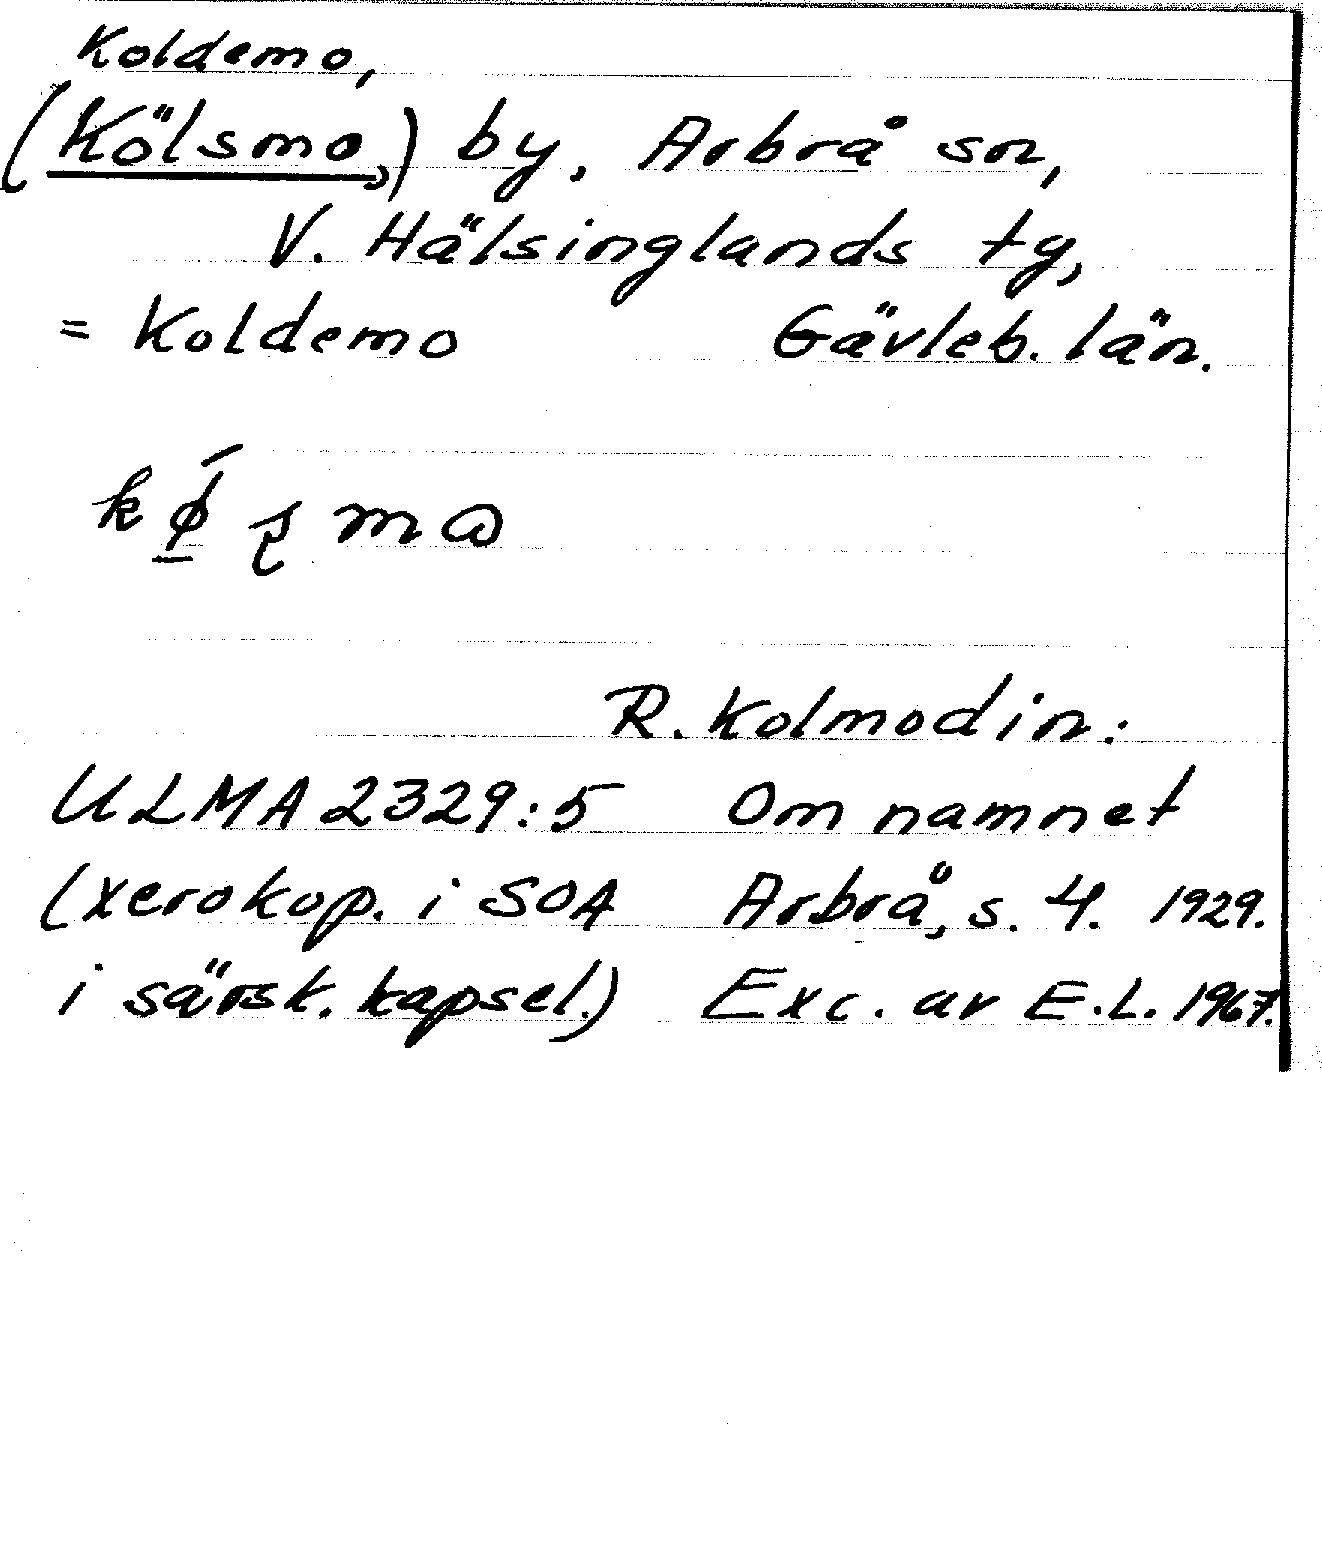 Koldemo,
(Kölsmo,) by, Arbrå sn,
V. Hälsinglands tg,
= Koldemo Gävleb. län.
R. Kolmodin:
ULMA 2329:5 Om namnet
(xerokop. i SOA Arbrå, s. 4. 1929.
i särsk. kapsel.) Exc. av E.L. 1967.